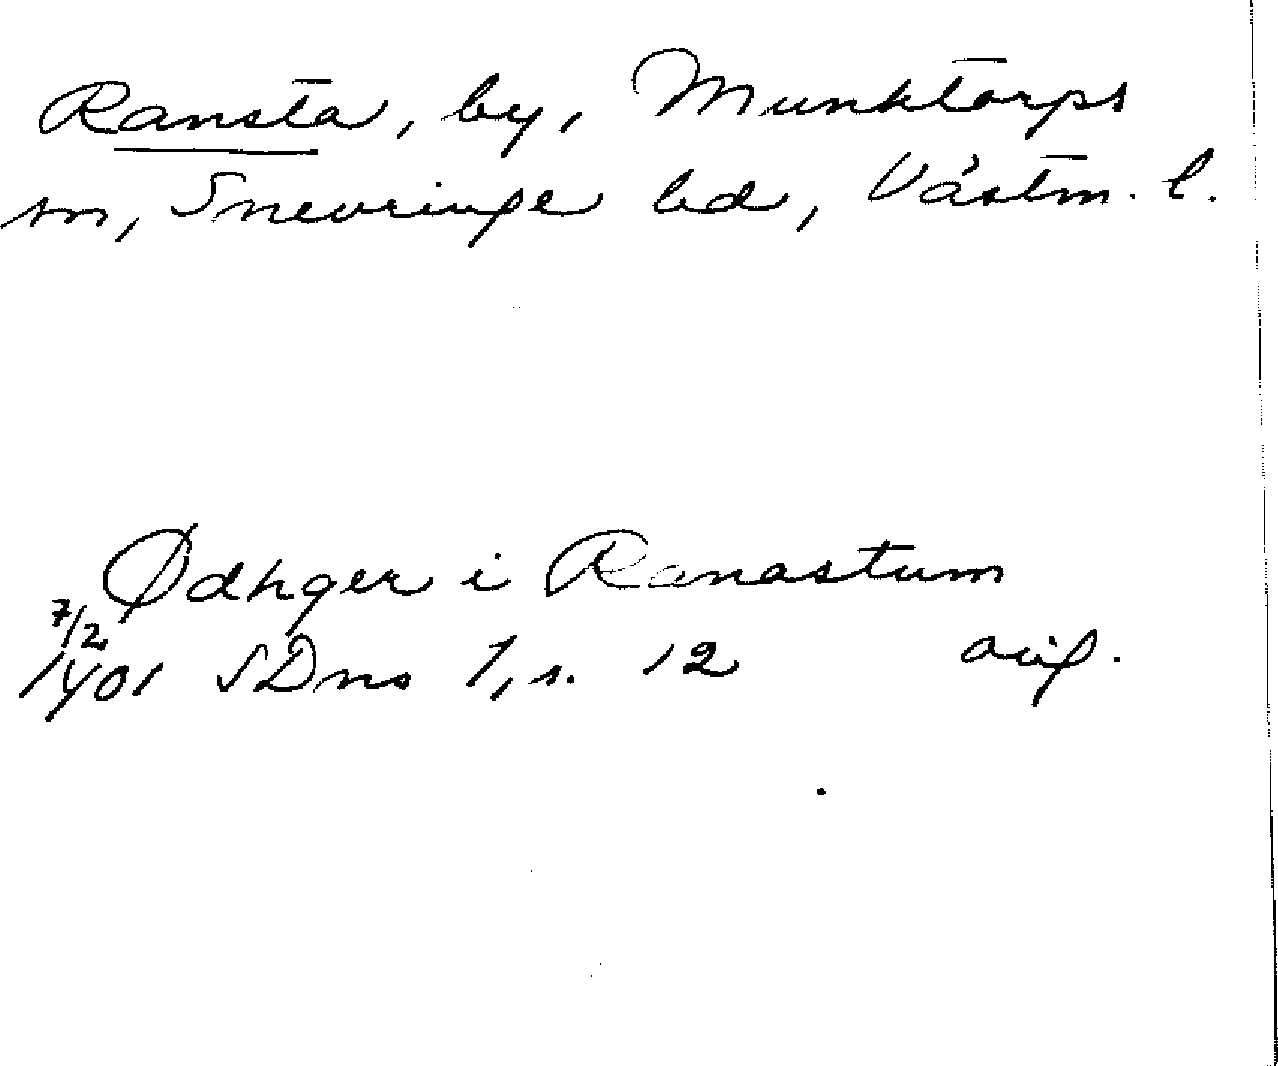 Ransta, by, Munktorps
sn, Snevringe hd, Västm. l.
Ødhger i Ranastum
7/2
1401 SDns 1, s. 12 orig.